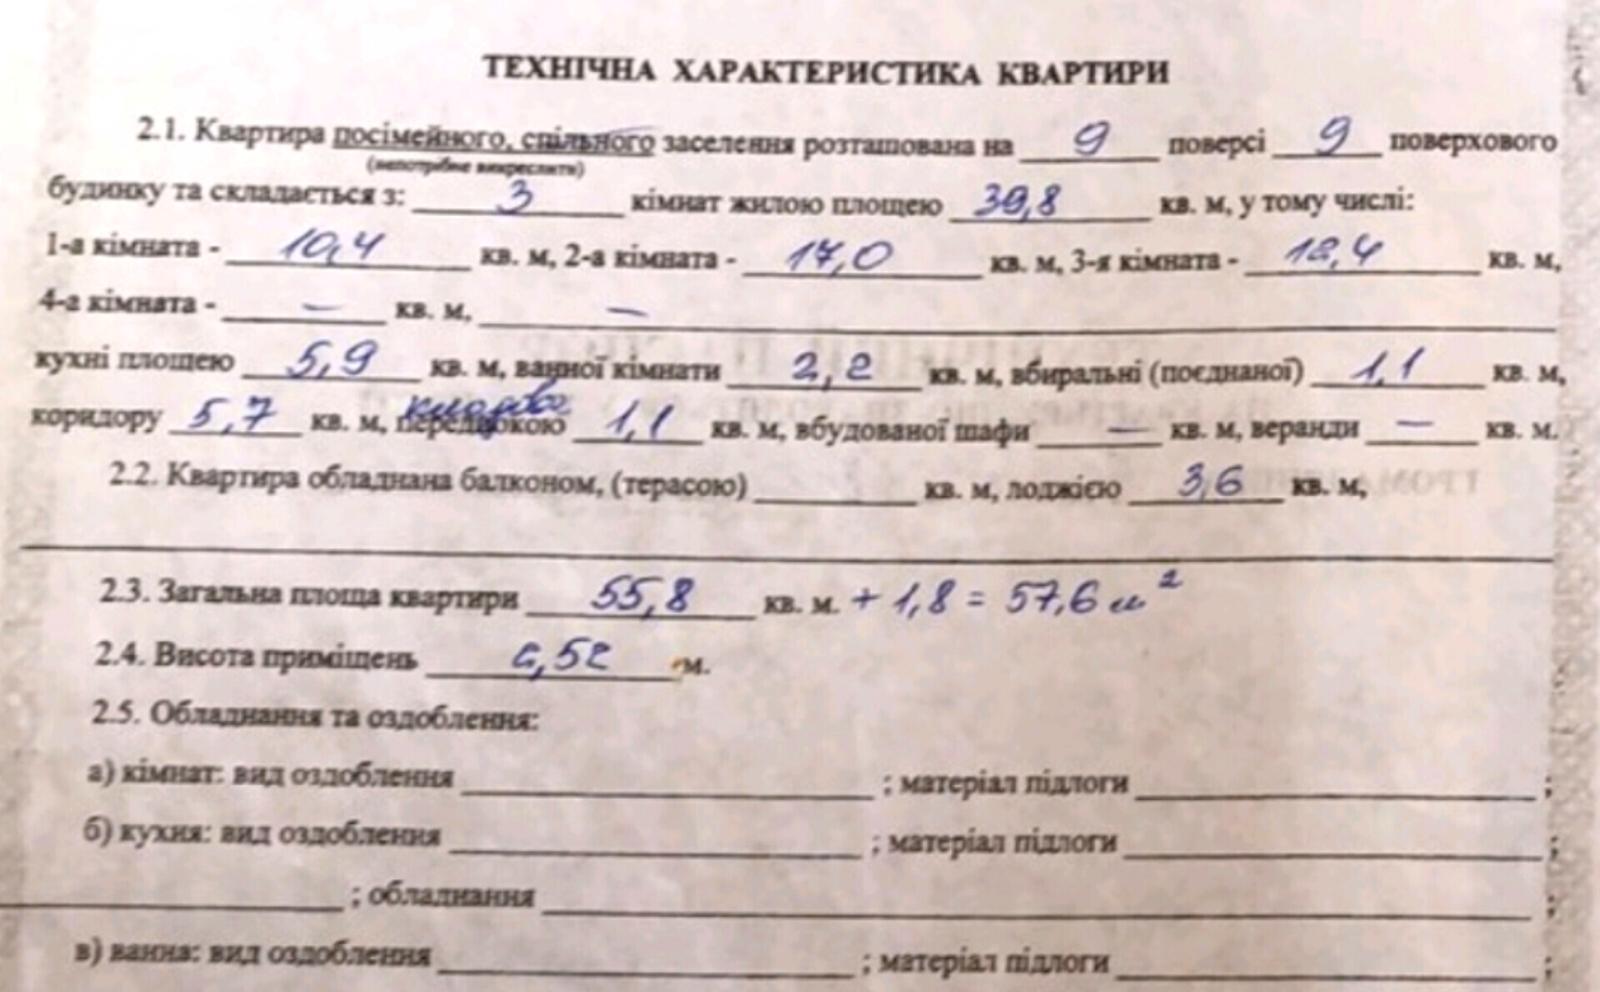 ТЕХНІЧНА ХАРАКТЕРИСТИКА КВАРТИРИ
2.1. Квартира посімейного, спільного заселення розташована на 9 поверсі 9 поверхового
(непотрібне викреслити)
будинку та складається з: 3 кімнат жилою площею 39,8 кв. м, у тому числі:
1-а кімната - 10,4 кв. м, 2-а кімната - 17,0 кв. м, 3-я кімната - 12,4 кв. м,
4-а кімната - — кв. м, —
кухні площею 5,9 кв. м, ванної кімнати 2,2 кв. м, вбиральні (поєднаної) 1,1 кв. м,
коридору 5,7 кв. м, 1,1 кв. м, вбудованої шафи — кв. м, веранди — кв. м.
2.2. Квартира обладнана балконом, (терасою) кв. м, лоджією 3,6 кв. м,
2.3. Загальна площа квартири 55,8 кв. м. + 1,8 = 57,6 м²
2.4. Висота приміщень 2,52 м.
2.5. Обладнання та оздоблення:
а) кімнат: вид оздоблення ; матеріал підлоги ;
б) кухня: вид оздоблення ; матеріал підлоги ;
; обладнання ;
в) ванна: вид оздоблення ; матеріал підлоги ;